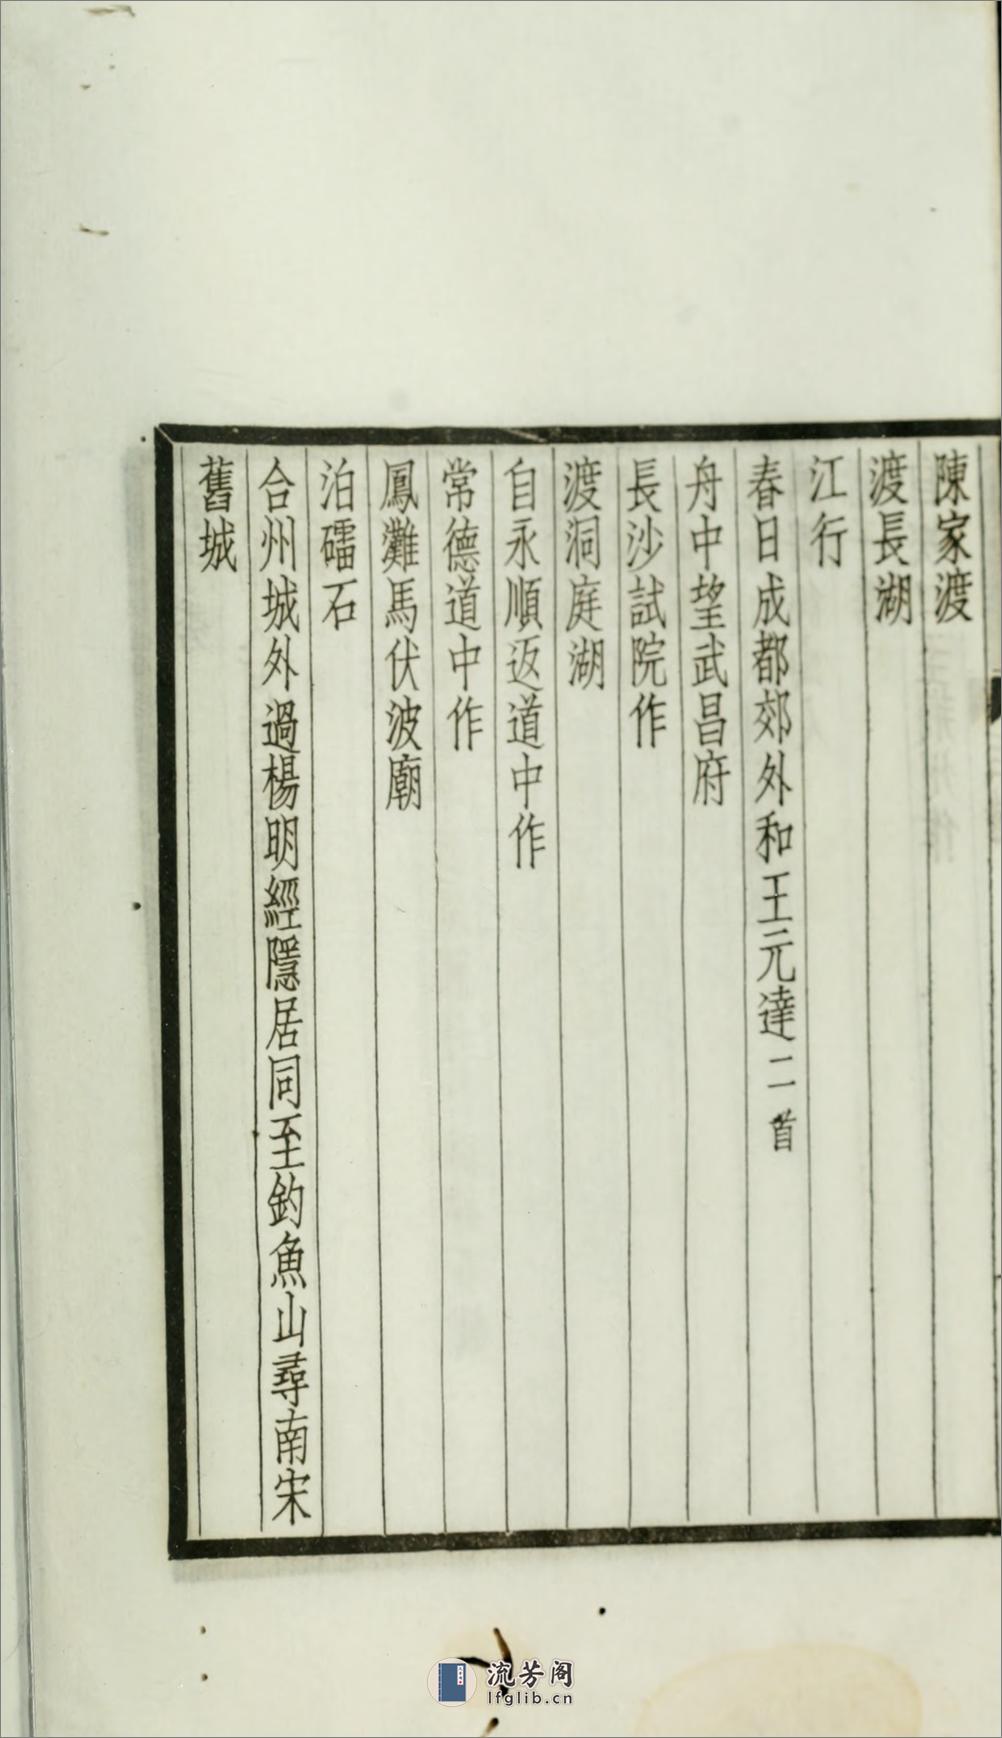 陳家渡
渡長湖
江行
春日成都郊外和王元達二首
舟中望武昌府
長沙試院作
渡洞庭湖
自永順返道中作
常德道中作
鳳灘馬伏波廟
泊礌石
合州城外過楊明經隱居同至釣魚山尋南宋
舊城
流芳阁
lfglib.cn